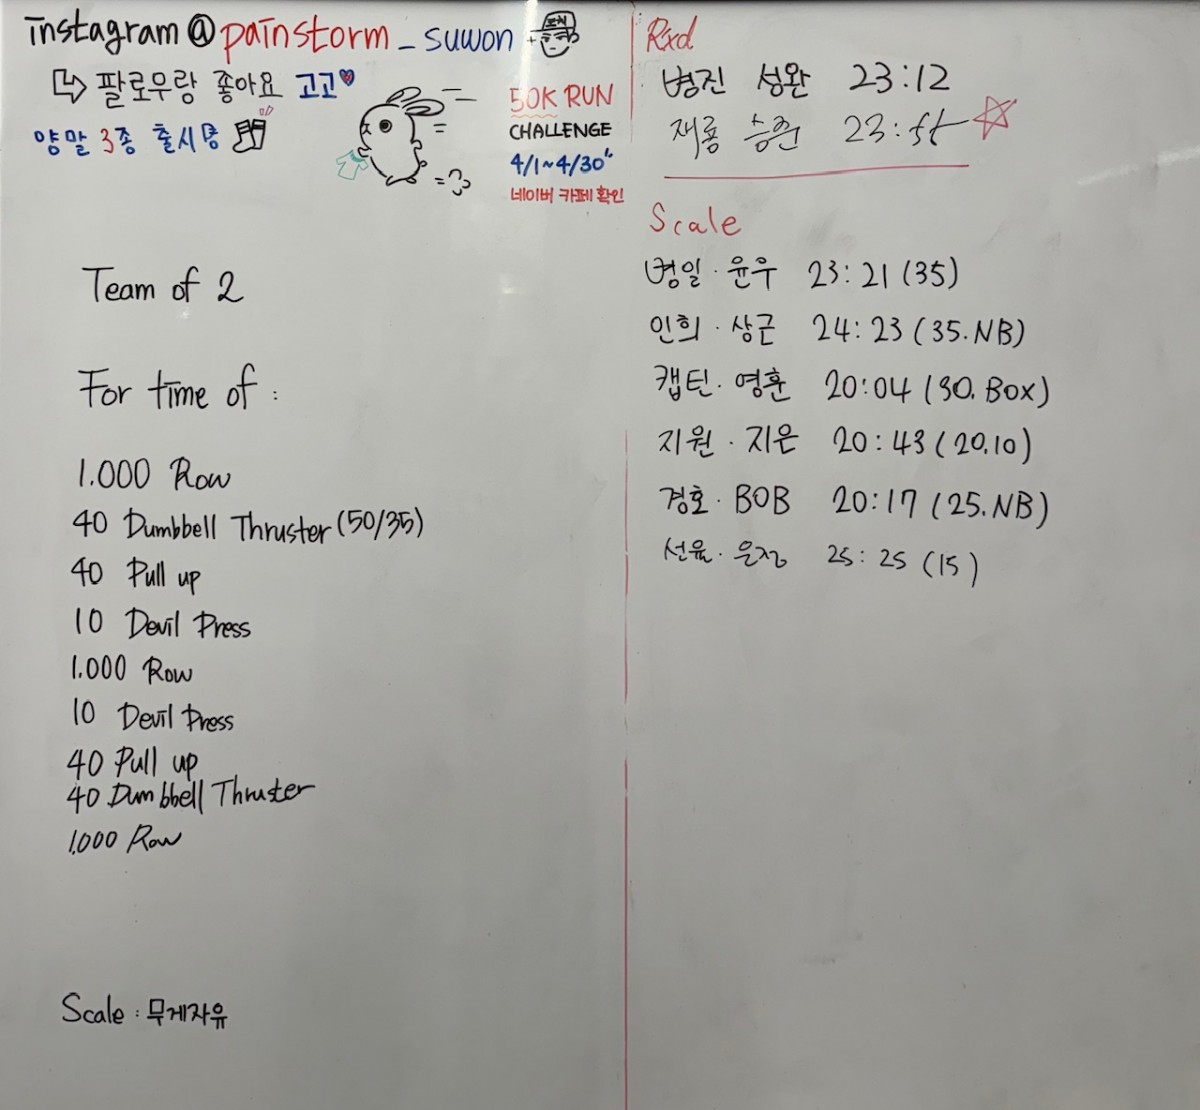 instagram @ painstorm_suwon
팔로우랑 좋아요 고고
양말 3종 출시
50K RUN
CHALLENGE
4/1~4/30
네이버 카페 확인
Team of 2
For time of :
1.000 Row
40 Dumbbell Thruster (50/35)
40 Pull up
10 Devil Press
1.000 Row
10 Devil Press
40 Pull up
40 Dumbbell Thruster
1.000 Row
Scale : 무게자유
Rxd
병진 성완 23:12
재룡 승준 23:55
Scale
병일 · 윤우 23:21 (35)
인희 · 상근 24:23 (35.NB)
캡틴 · 영훈 20:04 (30. Box)
지원 · 지은 20:43 (20.10)
경호 · BOB 20:17 (25.NB)
선율 · 은정 25:25 (15)